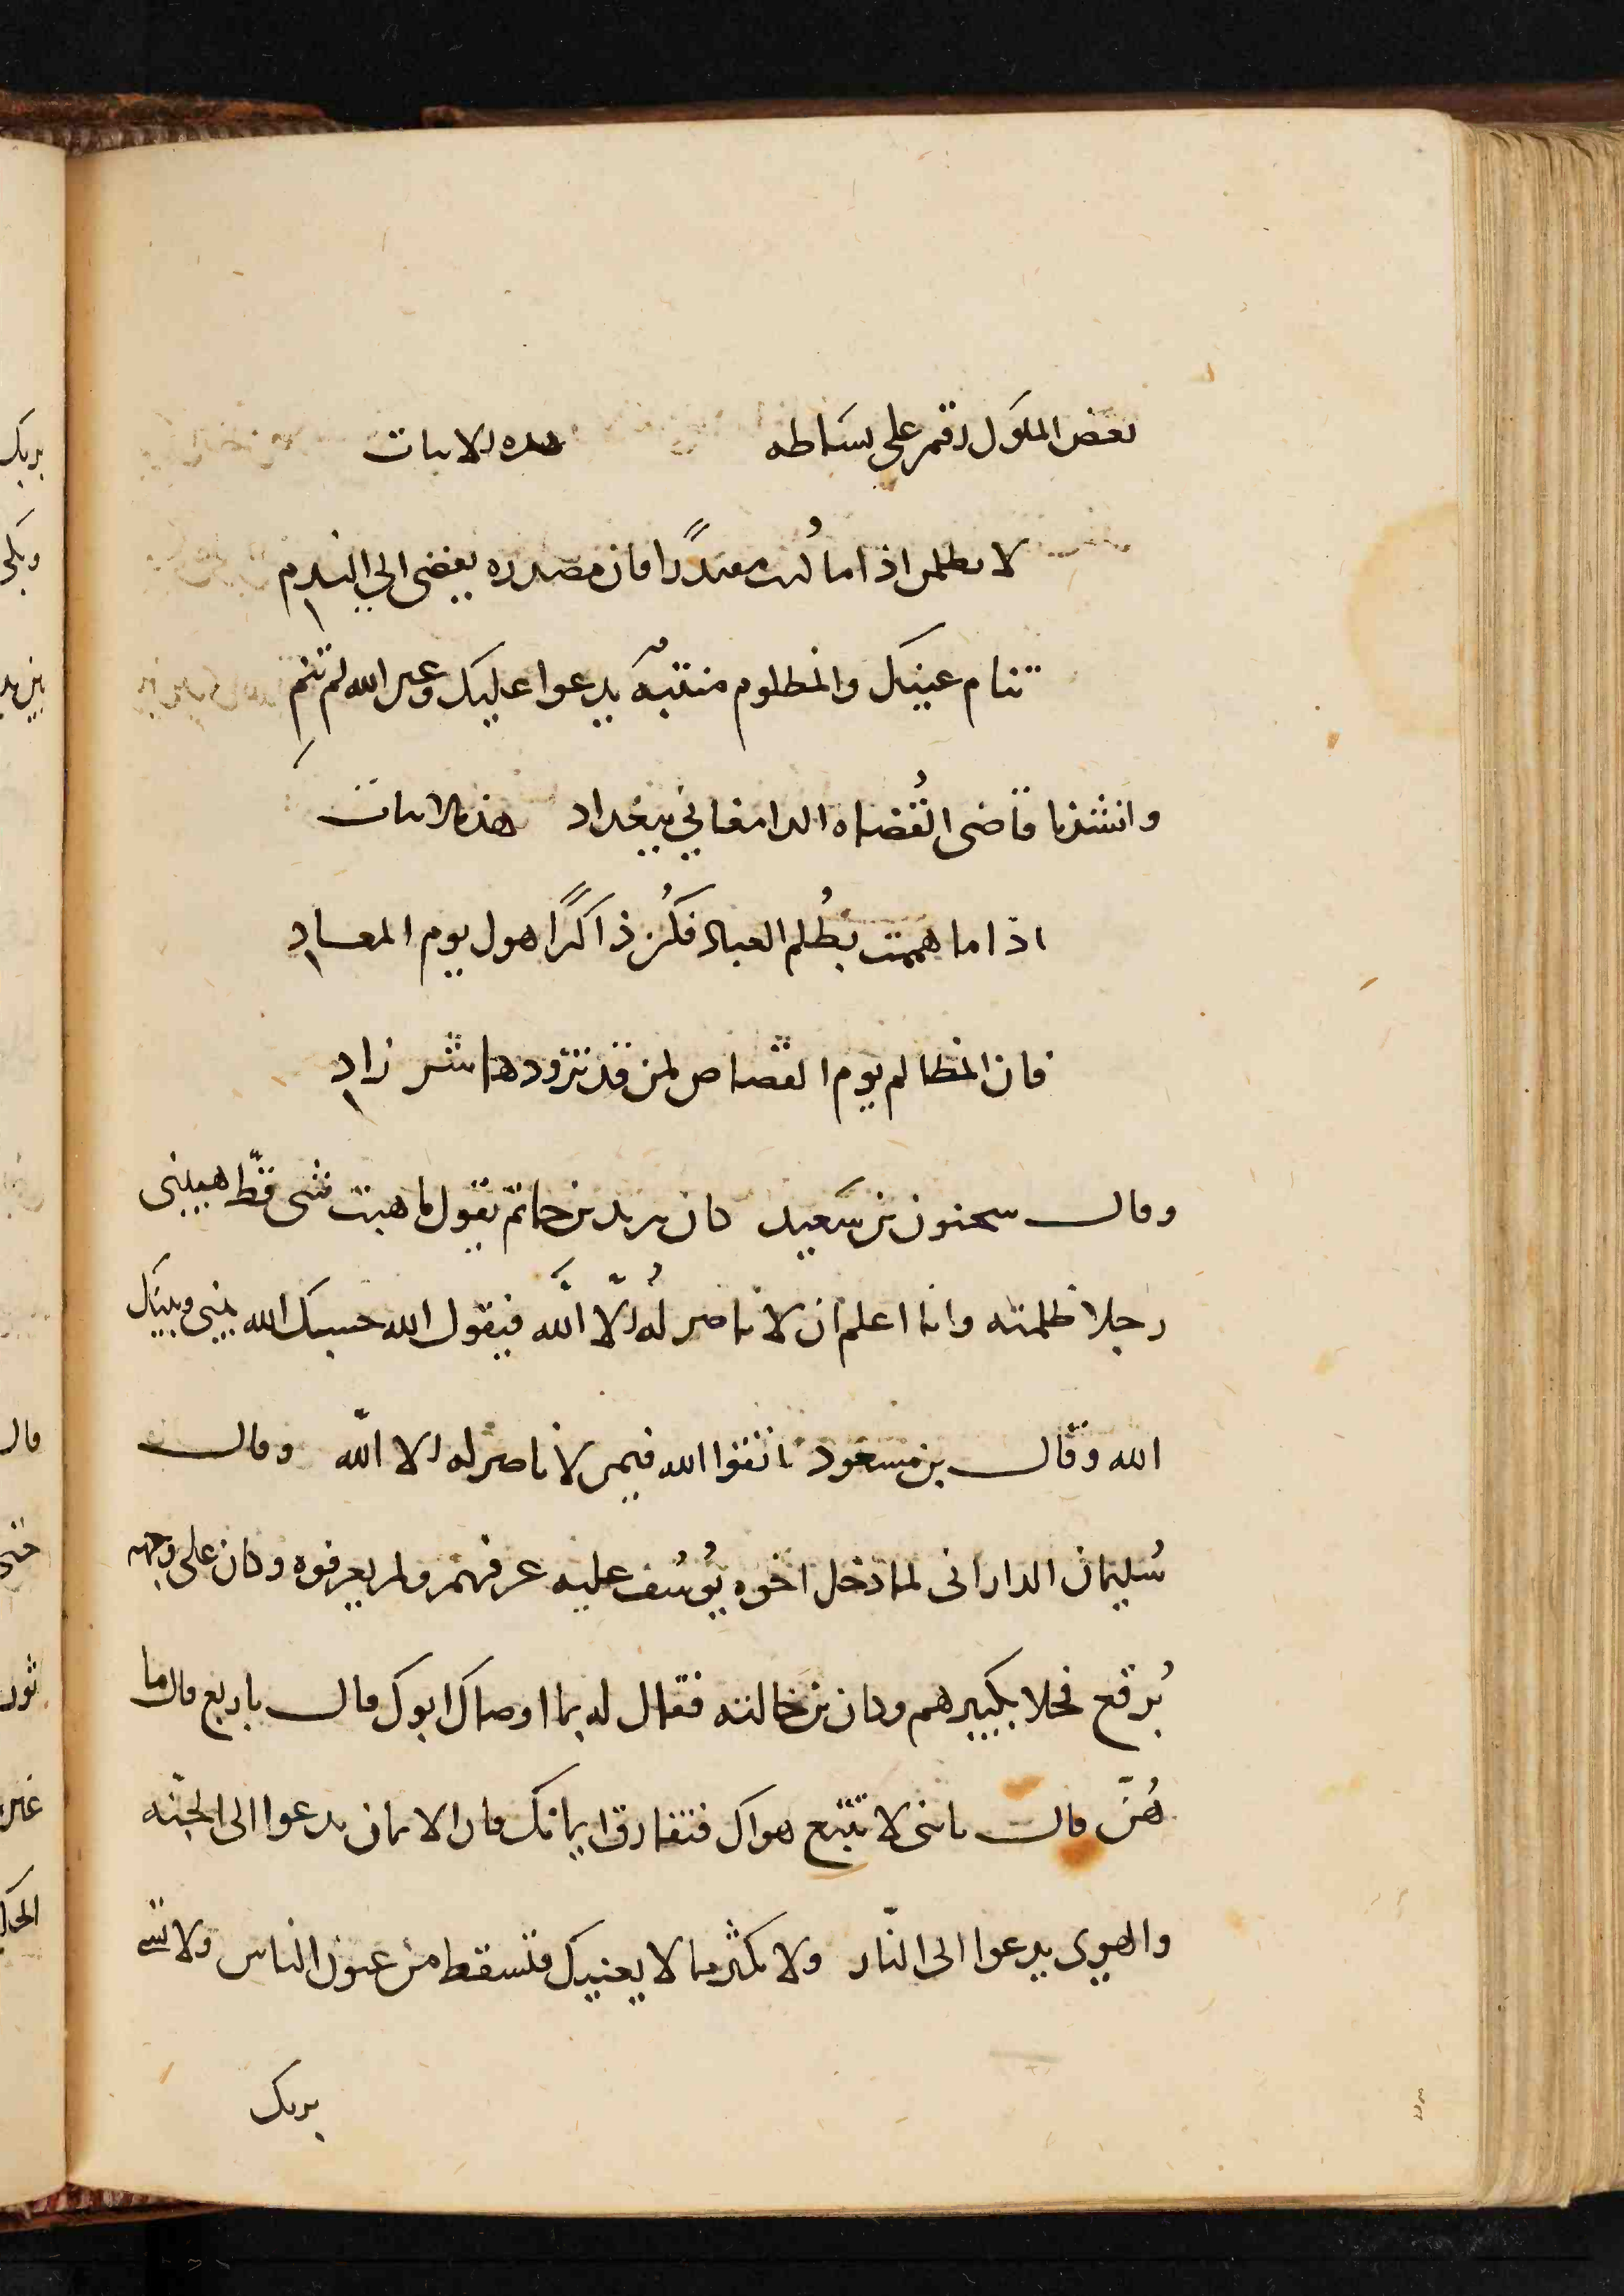 بعض الملوك رقم على بساطه هذه الابيات
لا تظلمن اذا ما كنت مقتدرًا فان مصدره يفضى الي الندم
تنام عينيك والمظلوم منتبهٌ يدعوا عليك وعين الله لم تنمِ
وانشدنا قاضى القُضاه الدامغاني ببغداد هذه الابيات
اذا ما هممت بظُلم العباد فكُن ذاكرًا هول يوم المعادِ
فان المظالم يوم القصاص لمن قد تزودها شر زادِ
وقال سحنون بن سَعيد كان يزيد بن حاتم يقول ما هبت شى قطّ هيبتى
رجلا ظلمته وانا اعلم ان لا ناصر لهُ الّا اللَّه فيقول الله حسبك الله بينى وبينك
الله وقال بن مسعود اتقوا الله فيمن لا ناصر له الا اللّه وقال
سُليمان الدارانى لما دخل اخوه يُوسُف عليه عرفهم ولم يعرفوه وكان على وجهه
بُرقع فخلا بكبيرهم وكان بن خالته فقال له بما اوصاك ابوك قال باربع قال ما
هُنّ قال يابنى لا تتبع هواك فتفارق ايمانك فان الايمان يدعوا الى الجنّه
والهوى يدعوا الى النّار ولا تكثر ما لا يعنيك فتسقط من عيون الناس ولا تسى
بربك